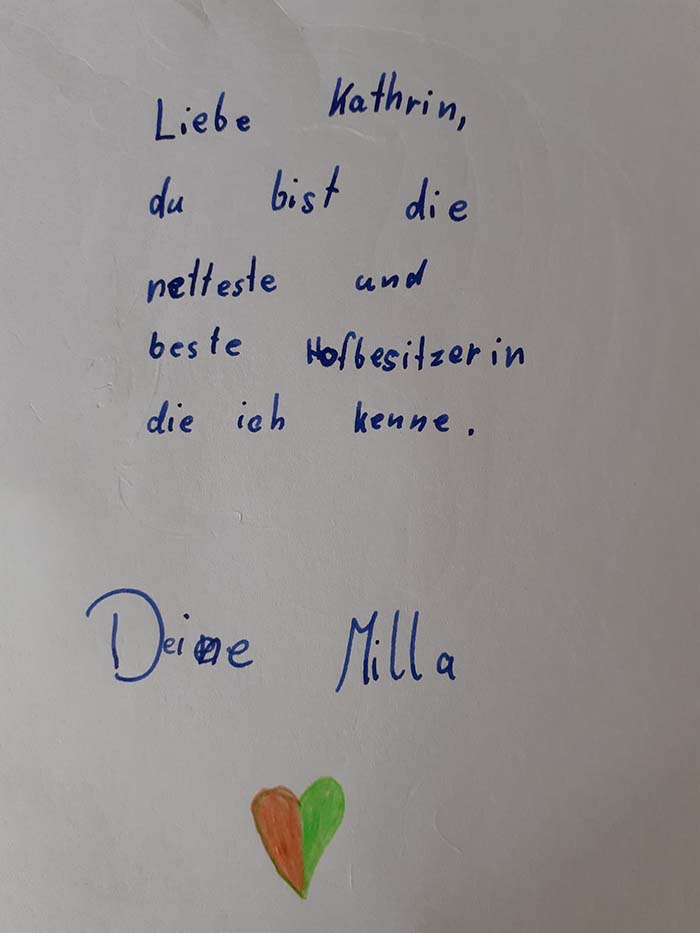 Liebe Kathrin,
du bist die
netteste und
beste Hofbesitzerin
die ich kenne.
Deine Milla